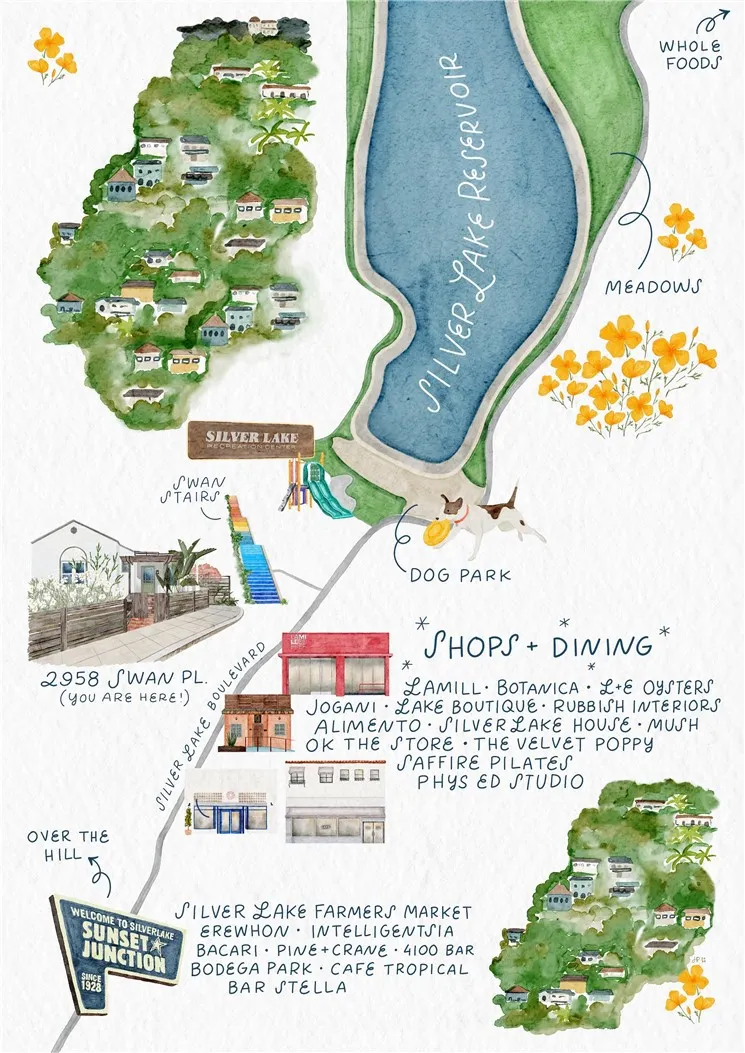 WHOLE
FOODS
SILVER LAKE RESERVOIR
MEADOWS
SILVER LAKE
RECREATION CENTER
SWAN
STAIRS
DOG PARK
2958 SWAN PL.
(YOU ARE HERE!)
SILVER LAKE BOULEVARD
* SHOPS + DINING *
LAMILL · BOTANICA · L+E OYSTERS
JOGANI · LAKE BOUTIQUE · RUBBISH INTERIORS
ALIMENTO · SILVER LAKE HOUSE · MUSH
OK THE STORE · THE VELVET POPPY
SAFFIRE PILATES
PHYS ED STUDIO
OVER THE
HILL
WELCOME TO SILVERLAKE
SUNSET
JUNCTION
SINCE
1928
SILVER LAKE FARMERS MARKET
EREWHON · INTELLIGENTSIA
BACARI · PINE+CRANE · 4100 BAR
BODEGA PARK · CAFE TROPICAL
BAR STELLA